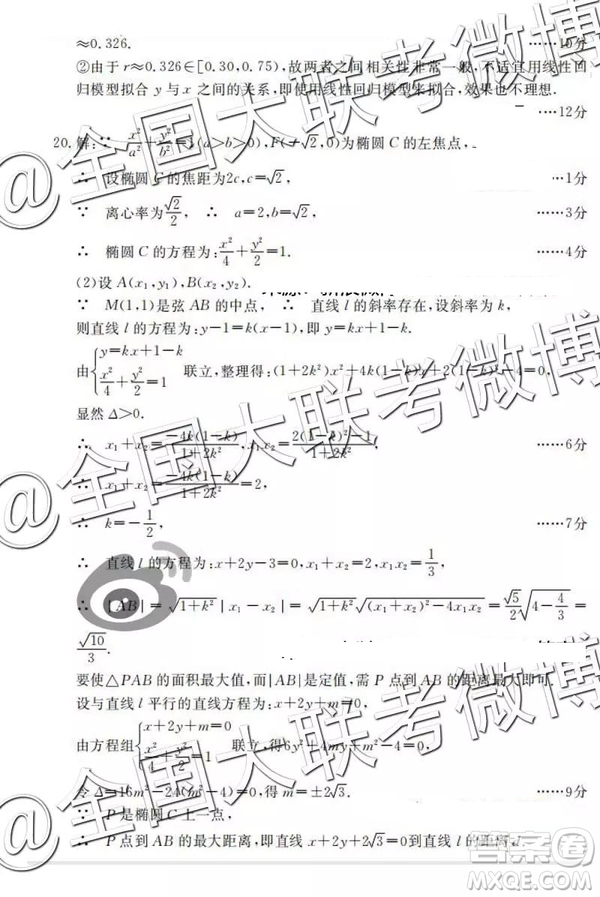 ≈0.326. ……10分
②由于 r≈0.326∈[0.30,0.75),故两者之间相关性非常一般,不适宜用线性回
归模型拟合 y 与 x 之间的关系,即使用线性回归模型来拟合,效果也不理想.
……12分
20.解:∵ x²/a²+y²/b²=1(a>b>0),F(-√2,0)为椭圆 C 的左焦点,
∴ 设椭圆 C 的焦距为2c,c=√2, …1分
∵ 离心率为√2/2, ∴ a=2,b=√2, ……3分
∴ 椭圆 C 的方程为:x²/4+y²/2=1. ……4分
(2)设 A(x₁,y₁),B(x₂,y₂).
∵ M(1,1)是弦 AB 的中点, ∴ 直线 l 的斜率存在,设斜率为 k,
则直线 l 的方程为:y-1=k(x-1),即 y=kx+1-k.
由{y=kx+1-k x²/4+y²/2=1 联立,整理得:(1+2k²)x²+4k(1-k)x+2(1-k)²-4=0,
显然 Δ>0.
∴ x₁+x₂=-4k(1-k)/1+2k²,x₁x₂=2(1-k)²-4/1+2k², ……6分
∴ x₁+x₂=-4k(1-k)/1+2k²=2,
∴ k=-1/2, ……7分
∴ 直线 l 的方程为:x+2y-3=0,x₁x₂=1/3,
∴ |AB|=√1+k²|x₁-x₂|=√1+k²√(x₁+x₂)²-4x₁x₂=√5/2√4-4/3=
√10/3.
要使△PAB 的面积最大值,而|AB|是定值,需 P 点到 AB 的距离最大即可.
设与直线 l 平行的直线方程为:x+2y+m=0,
由方程组{x+2y+m=0 x²/4+y²/2=1 联立,得6y²+4my+m²-4=0,
令 Δ=16m²-24(m²-4)=0,得 m=±2√3. ……9分
∵ P 是椭圆 C 上一点,
∴ P 点到 AB 的最大距离,即直线 x+2y+2√3=0到直线 l 的距离 d.
@全国大联考微博
@全国大联考微博
@全国大联考微博
答案卷
MXQE.COM